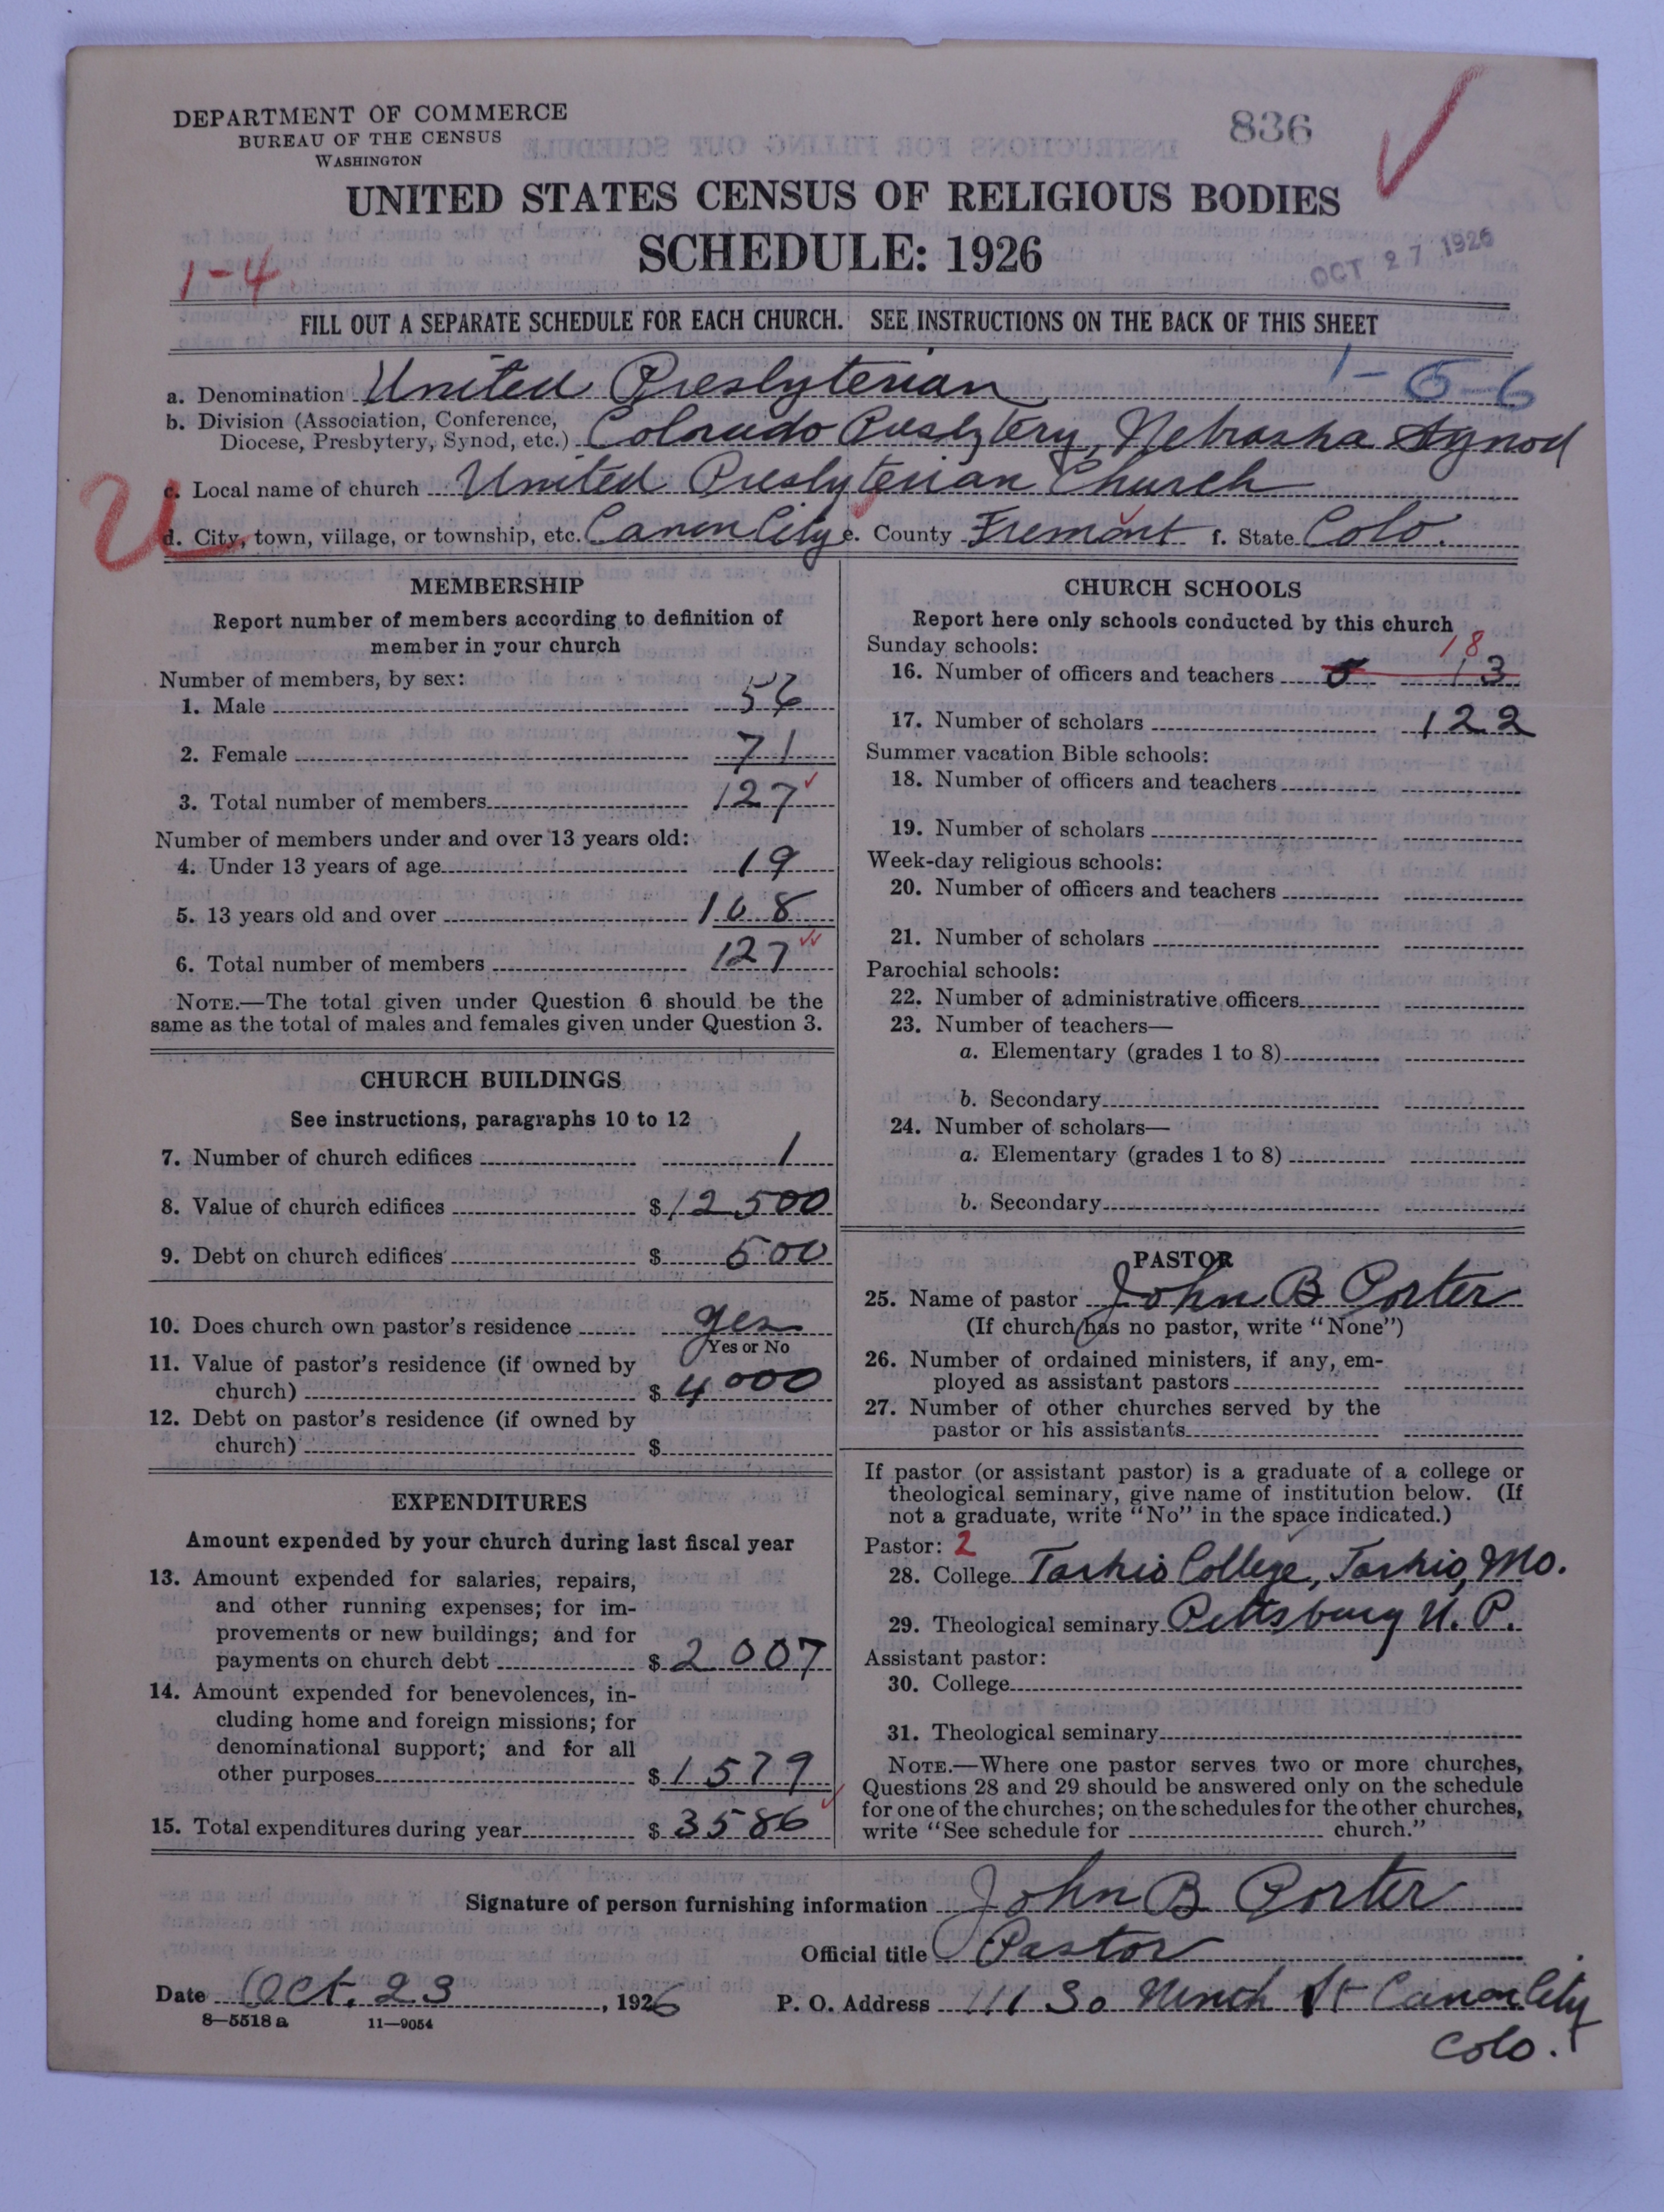 DEPARTMENT OF COMMERCE
BUREAU OF THE CENSUS
WASHINGTON
836
UNITED STATES CENSUS OF RELIGIOUS BODIES
SCHEDULE: 1926
1-4
OCT 27 1926
FILL OUT A SEPARATE SCHEDULE FOR EACH CHURCH. SEE INSTRUCTIONS ON THE BACK OF THIS SHEET
1-5-6
a. Denomination United Presbyterian
b. Division (Association, Conference, Diocese, Presbytery, Synod, etc.) Colorado Presbytery, Nebraska Synod
c. Local name of church United Presbyterian Church
U
d. City, town, village, or township, etc. Canon City e. County Fremont f. State Colo.
MEMBERSHIP
Report number of members according to definition of
member in your church
Number of members, by sex:
1. Male 56
2. Female 71
3. Total number of members 127
Number of members under and over 13 years old:
4. Under 13 years of age 19
5. 13 years old and over 108
6. Total number of members 127
NOTE.—The total given under Question 6 should be the
same as the total of males and females given under Question 3.
CHURCH BUILDINGS
See instructions, paragraphs 10 to 12
7. Number of church edifices 1
8. Value of church edifices $12500
9. Debt on church edifices $500
10. Does church own pastor's residence yes
Yes or No
11. Value of pastor's residence (if owned by
church) $4000
12. Debt on pastor's residence (if owned by
church) $
EXPENDITURES
Amount expended by your church during last fiscal year
13. Amount expended for salaries, repairs,
and other running expenses; for im-
provements or new buildings; and for
payments on church debt $2007
14. Amount expended for benevolences, in-
cluding home and foreign missions; for
denominational support; and for all
other purposes $1579
15. Total expenditures during year $3586
CHURCH SCHOOLS
Report here only schools conducted by this church
Sunday schools: 18
16. Number of officers and teachers 5 13
17. Number of scholars 122
Summer vacation Bible schools:
18. Number of officers and teachers
19. Number of scholars
Week-day religious schools:
20. Number of officers and teachers
21. Number of scholars
Parochial schools:
22. Number of administrative officers
23. Number of teachers—
a. Elementary (grades 1 to 8)
b. Secondary
24. Number of scholars—
a. Elementary (grades 1 to 8)
b. Secondary
PASTOR
25. Name of pastor John B Porter
(If church has no pastor, write "None")
26. Number of ordained ministers, if any, em-
ployed as assistant pastors
27. Number of other churches served by the
pastor or his assistants
If pastor (or assistant pastor) is a graduate of a college or
theological seminary, give name of institution below. (If
not a graduate, write "No" in the space indicated.)
Pastor: 2
28. College Tarkio College, Tarkio, Mo.
29. Theological seminary Pittsburg U. P.
Assistant pastor:
30. College
31. Theological seminary
NOTE.—Where one pastor serves two or more churches,
Questions 28 and 29 should be answered only on the schedule
for one of the churches; on the schedules for the other churches,
write "See schedule for church."
Signature of person furnishing information John B Porter
Official title Pastor
Date Oct. 23, 1926 P. O. Address 111 So Ninth St Canon City
Colo.
8—5518 a 11—9054